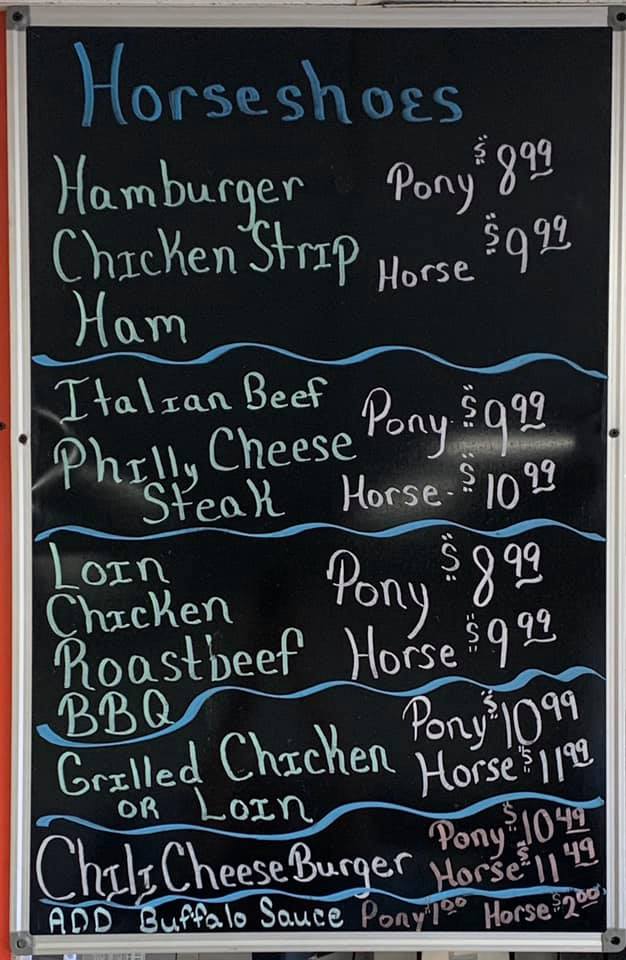 Horseshoes
Hamburger Pony $8.99
Chicken Strip Horse $9.99
Ham
Italian Beef Pony $9.99
Philly Cheese
Steak Horse- $10.99
Loin Pony $8.99
Chicken
Roastbeef Horse $9.99
BBQ
Grilled Chicken Pony $10.99
or Loin Horse $11.99
Chili Cheese Burger Pony $10.49
Horse $11.49
ADD Buffalo Sauce Pony $1.00 Horse $2.00